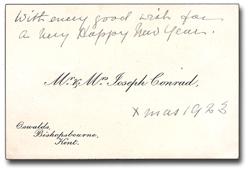 With every good wish for
a very Happy New Year.
Mr & Mrs Joseph Conrad,
Xmas 1923
Oswalds,
Bishopsbourne,
Kent.